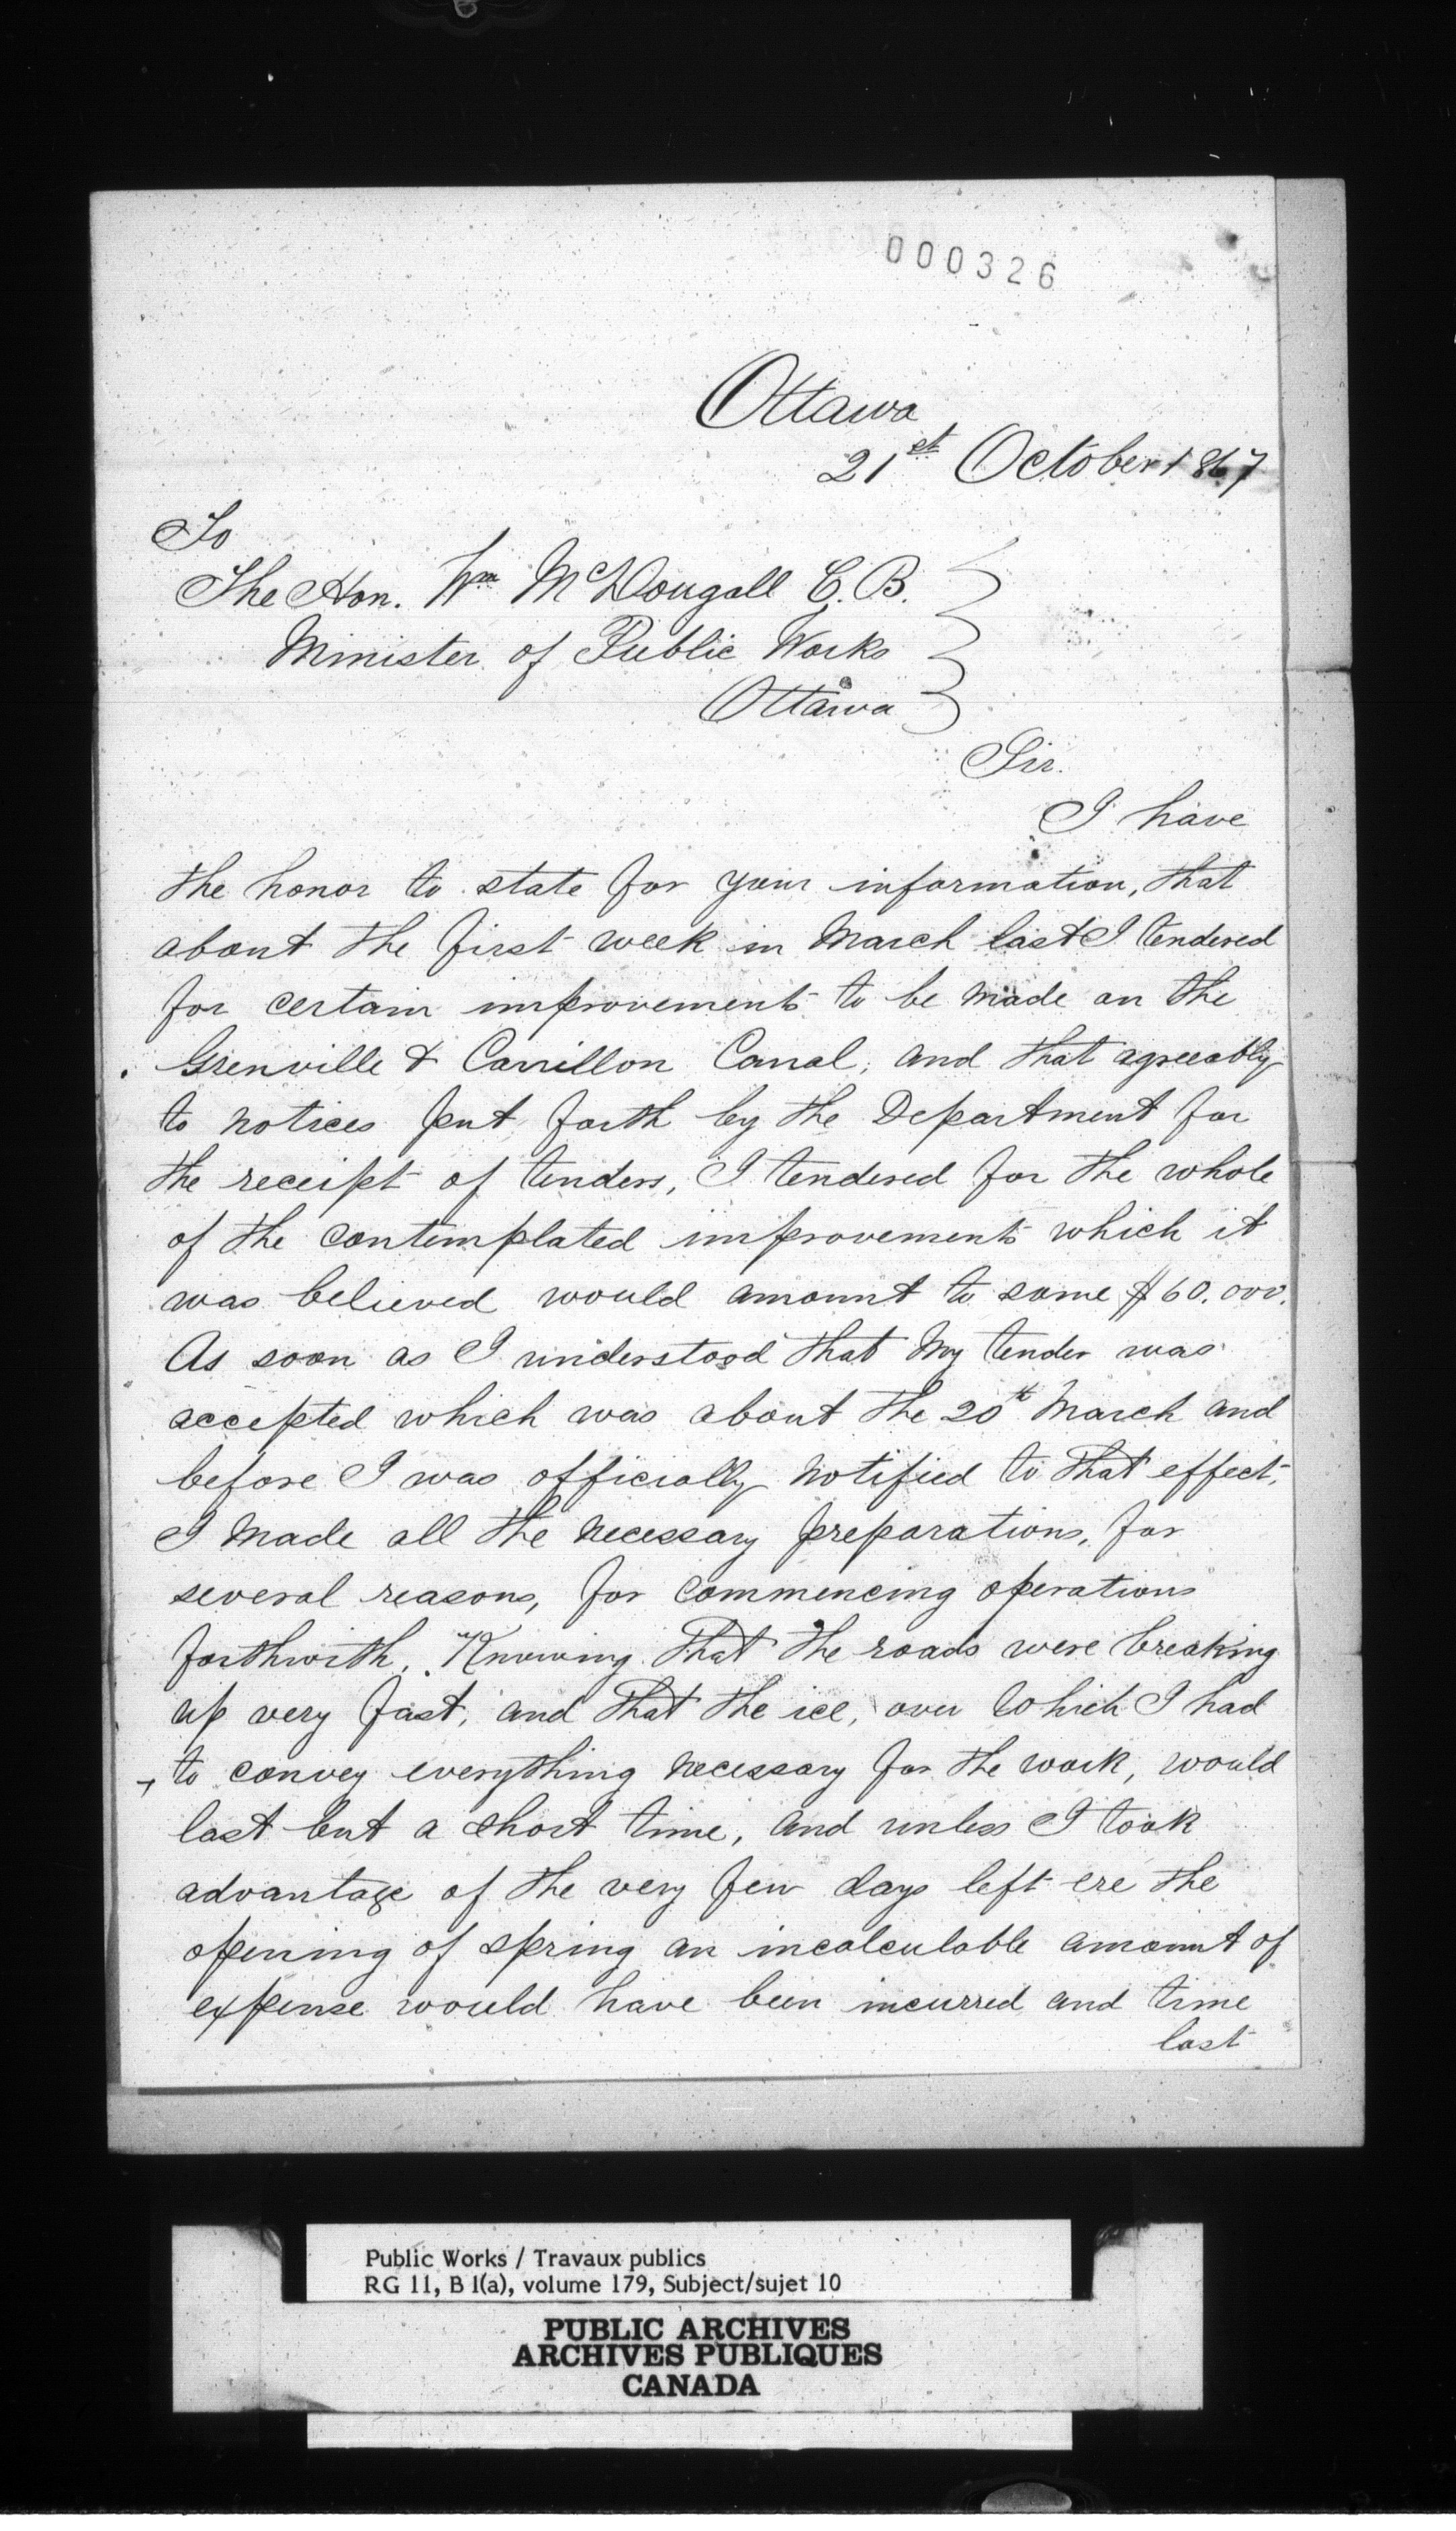 000326
Ottawa
21st October 1867
To
The Hon. Wm McDougall C.B.
Minister of Public Works
Ottawa
Sir.
I have
the honor to state for your information, that
about the first week in March last I tendered
for certain improvements to be made on the
Grenville & Carrillon Canal, and that agreeably
to notices put forth by the Department for
the receipt of tenders, I tendered for the whole
of the contemplated improvements which it
was believed would amount to some $60.000.
As soon as I understood that my tender was
accepted which was about the 20th March and
before I was officially notified to that effect,
I made all the necessary preparations, for
several reasons, for commencing operations
forthwith. Knowing that the roads were breaking
up very fast, and that the ice, over which I had
to convey everything necessary for the work, would
last but a short time, and unless I took
advantage of the very few days left ere the
opening of spring an incalculable amount of
expense would have been incurred and time
lost
Public Works / Travaux publics
RG 11, B 1(a), volume 179, Subject/sujet 10
PUBLIC ARCHIVES
ARCHIVES PUBLIQUES
CANADA